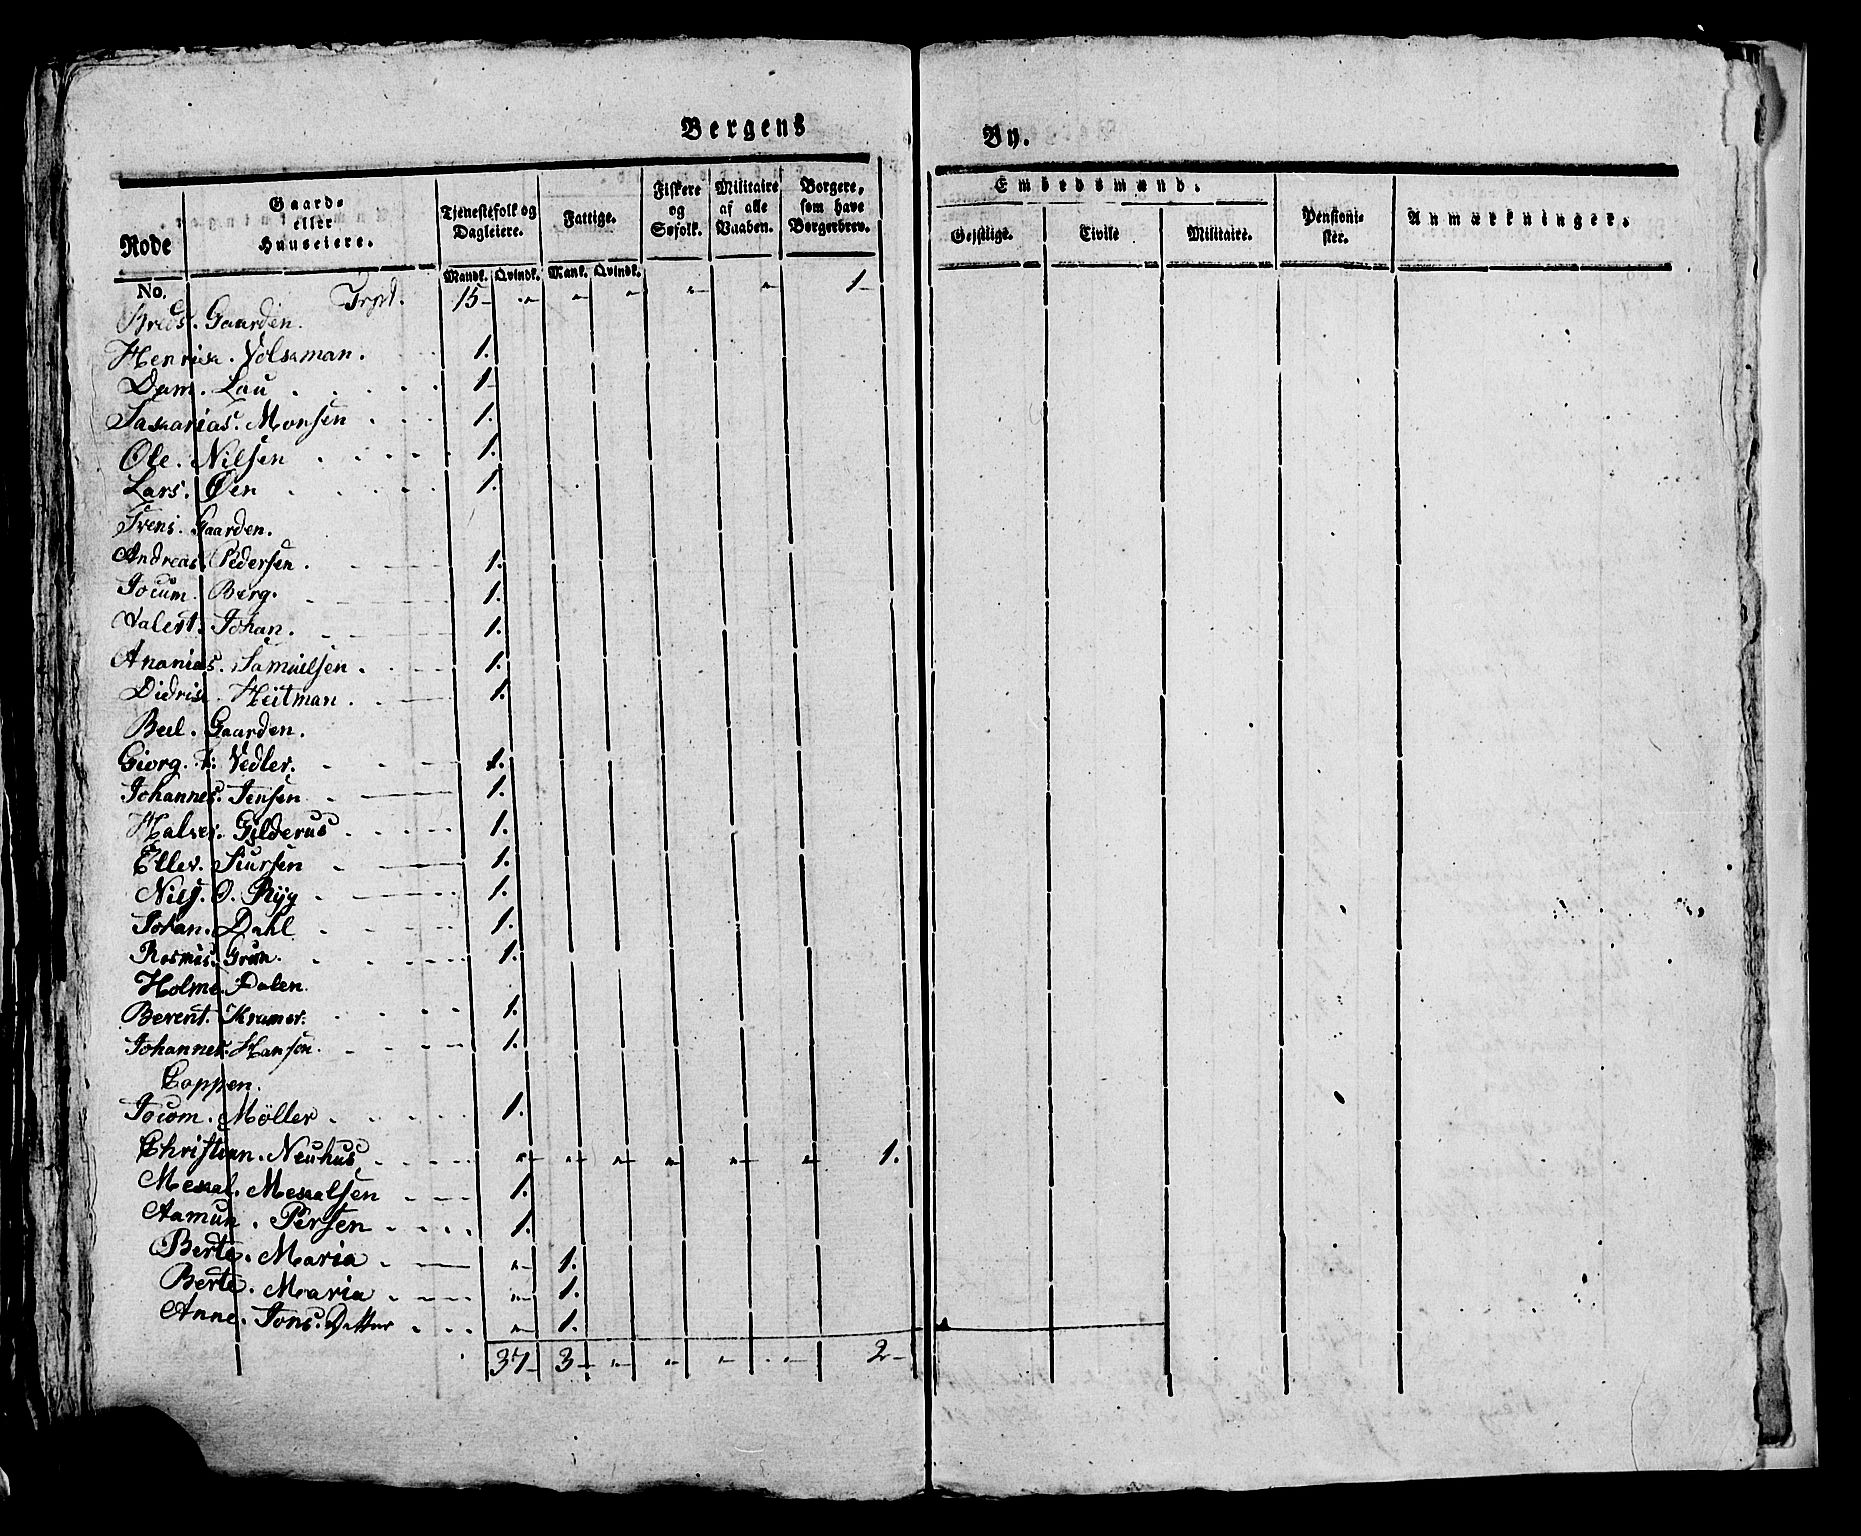 Bergens By.
Rode
No.
Gaard- eller Huuseiere.
Tjenestefolk og Dagleiere.
Mandk. Qvindk.
Fattige.
Mank. Qvindk.
Fiskere og Søfolk.
Militaire af alle Vaaben.
Borgere, som have Borgerbrev.
Embedsmænd.
Gejstlige.
Civile
Militaire.
Pensionister.
Anmærkninger.
Trpt. 15 " " " " " 1
Breds. Gaarden.
Henrik. Volkman. 1.
Dam. Lau 1
Sakarias. Monsen 1.
Ole. Nilsen 1.
Lars. Øen 1.
Svens. Gaarden.
Andreas. Pedersen. 1.
Jocum. Berg. 1.
Valert. Johan. 1.
Ananias. Samuelsen. 1.
Didrik. Heitman. 1.
Buel. Gaarden.
Giorg. Vedler. 1.
Johannes. Jensen. 1.
Halver. Gilderus. 1.
Eller. Siursen 1.
Nils. O. Ryg 1.
Johan. Dahl 1.
Rasmus. Grun. 1.
Holme. Dalen.
Berent. Kramer. 1.
Johannes. Hanson. 1.
Coppen.
Jocom. Möller. 1.
Christian. Neuhus " " " " " " 1.
Mekal. Mekalsen 1.
Aamun. Persen 1.
Berte. Maria " 1.
Berte. Maria " 1.
Anne. Jons. Datter " 1.
37 3 " " " " 2